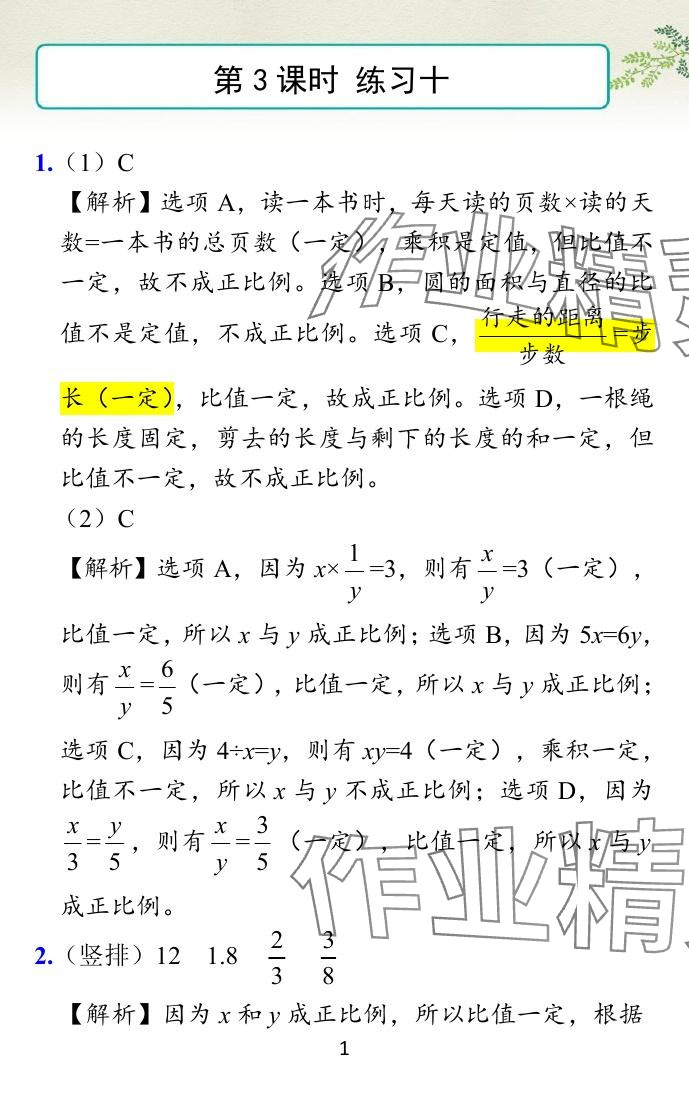 第 3 课时 练习十
1.（1）C
【解析】选项 A，读一本书时，每天读的页数×读的天
数=一本书的总页数（一定），乘积是定值，但比值不
一定，故不成正比例。选项 B，圆的面积与直径的比
值不是定值，不成正比例。选项 C，行走的距离/步数=步
长（一定），比值一定，故成正比例。选项 D，一根绳
的长度固定，剪去的长度与剩下的长度的和一定，但
比值不一定，故不成正比例。
（2）C
【解析】选项 A，因为 x×1/y=3，则有 x/y=3（一定），
比值一定，所以 x 与 y 成正比例；选项 B，因为 5x=6y，
则有 x/y=6/5（一定），比值一定，所以 x 与 y 成正比例；
选项 C，因为 4÷x=y，则有 xy=4（一定），乘积一定，
比值不一定，所以 x 与 y 不成正比例；选项 D，因为
x/3=y/5，则有 x/y=3/5（一定），比值一定，所以 x 与 y
成正比例。
2.（竖排）12 1.8 2/3 3/8
【解析】因为 x 和 y 成正比例，所以比值一定，根据
1
作业精灵
作业精灵